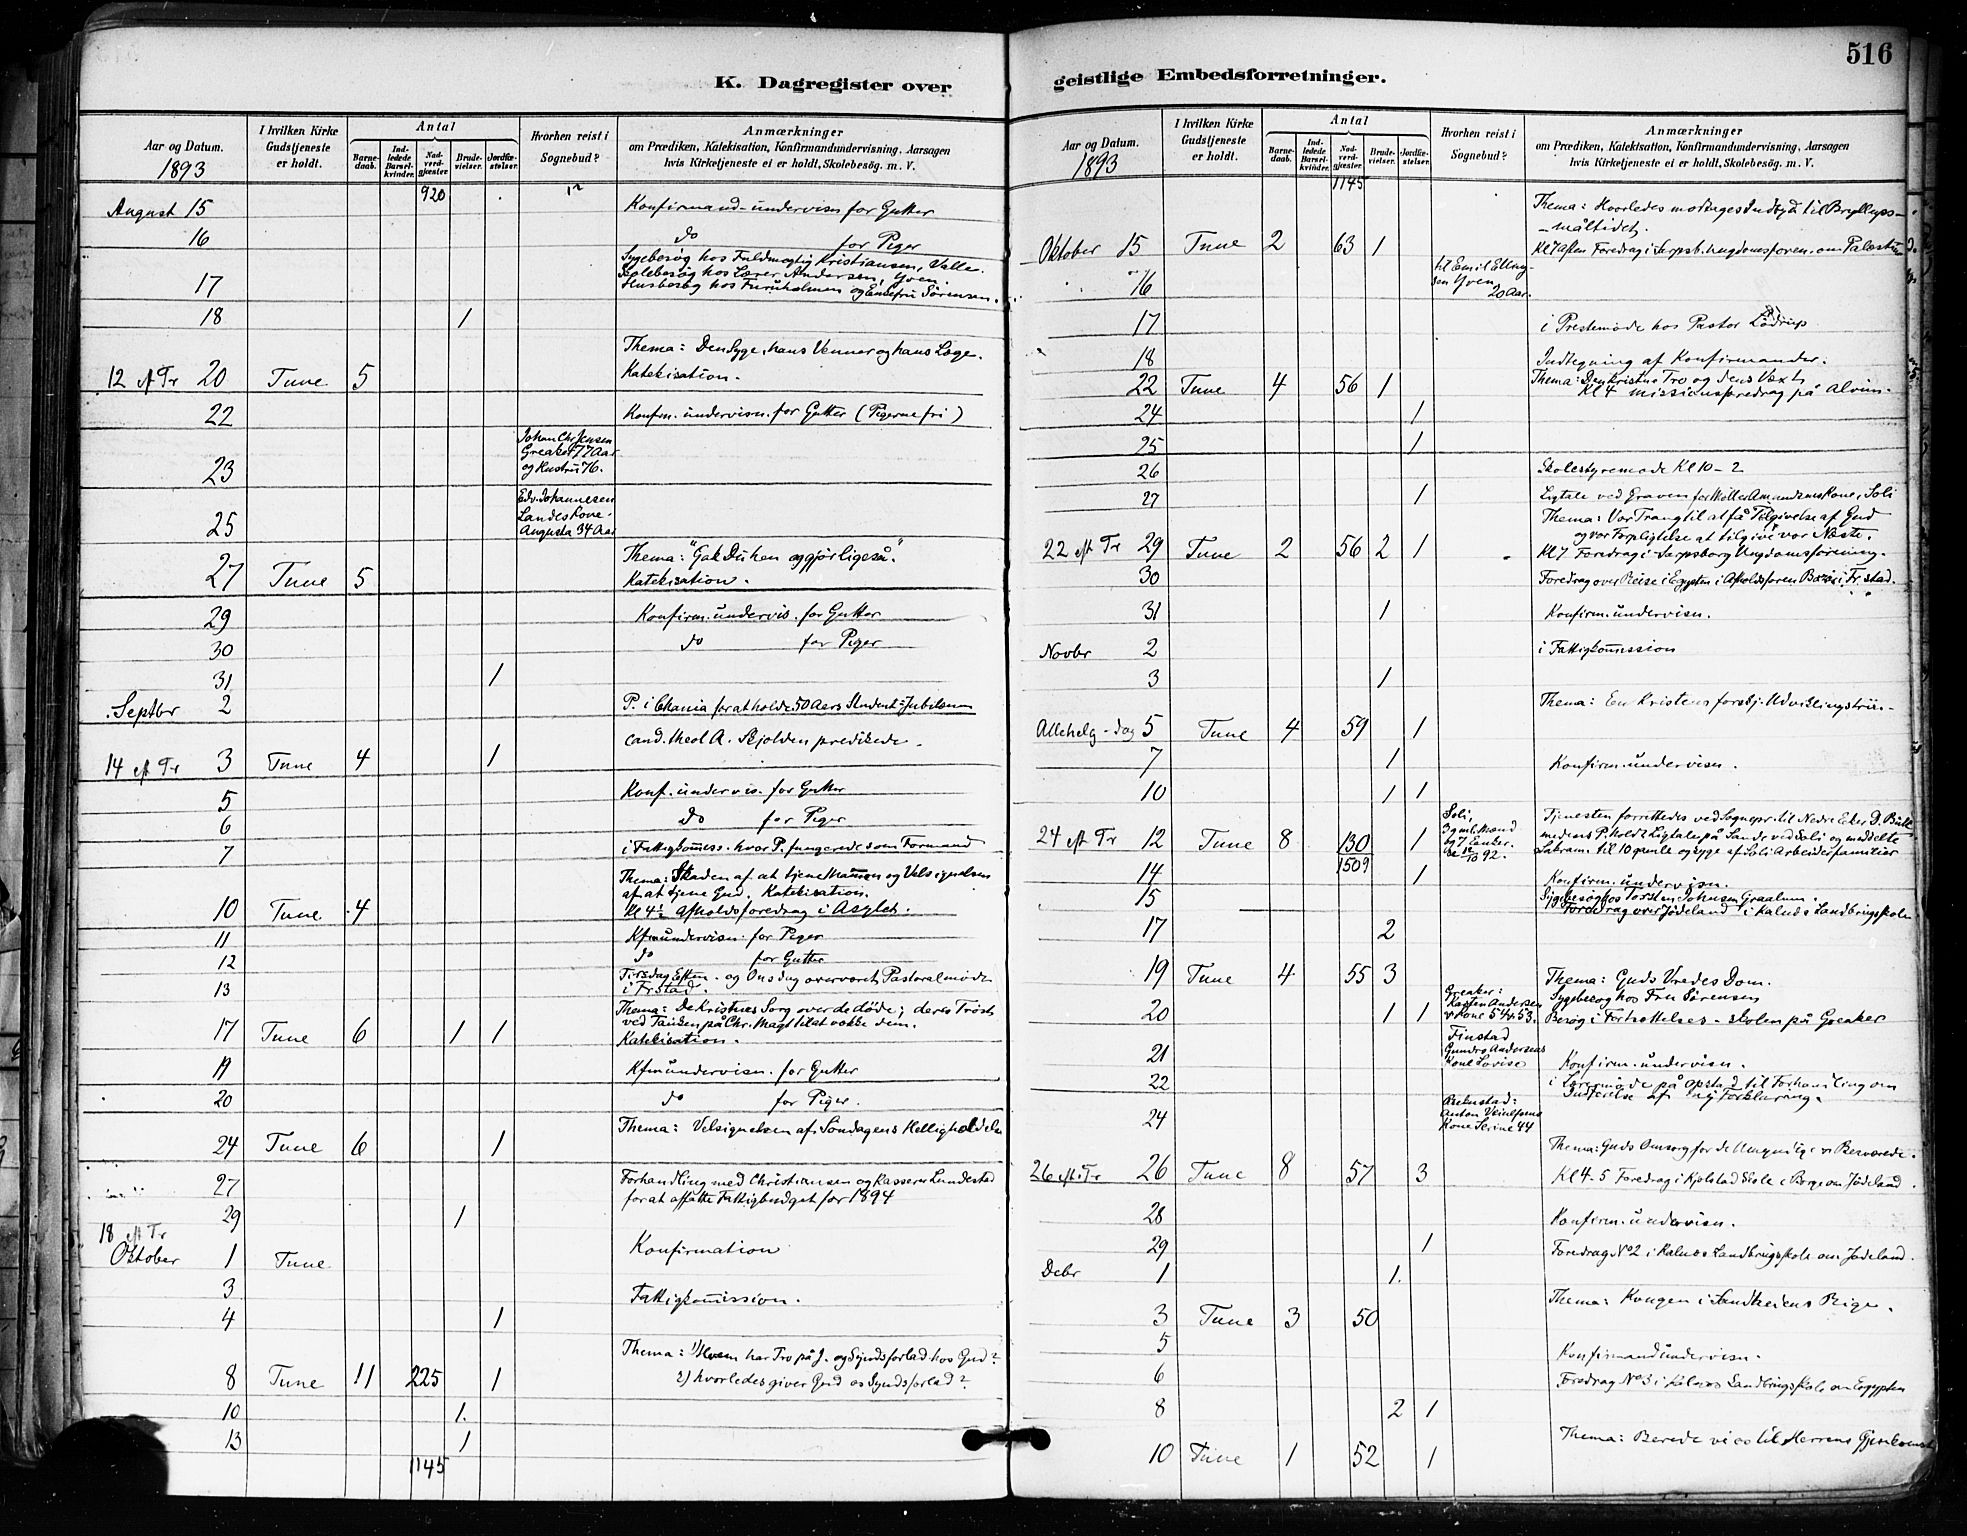 516
K. Dagregister over
Aar og Datum.
1893
I hvilken Kirke Gudstjeneste er holdt.
Antal
Barne-daab.
Ind-ledede Barsel-kvinder.
Nad-verd-gjæster.
Brude-vielser.
Jordfæ-stelser.
Hvorhen reist i Sognebud?
Anmærkninger
om Prædiken, Katekisation, Konfirmandundervisning, Aarsagen
hvis Kirketjeneste ei er holdt, Skolebesøg. m. V.
920
August 15 Konfirmand-undervisn for Gutter
16 do for Piger
Sygebesøg hos Fuldmægtig Kristiansen, Valle.
Skolebesøg hos Lærer Andersen, Yven.
17 Husbesøg hos Furuholmen og Enkefru Sørensen.
18 1
Thema: Den Syge, hans Venner og hans Læge.
12 eft Tr 20 Tune 5 Katekisation.
22 Konfm. undervisn. for Gutter (Pigerne fri)
Johan Chr Jensen
Greaker 77 Aar
23 og Hustru 76.
Edv. Johannesen
Landes Kone
25 Augusta 34 Aar
Thema: "Gak Du hen og gjør ligeså".
27 Tune 5 Katekisation.
29 Konfirm. undervis. for Gutter
30 do for Piger
31 1
Septbr 2 P. i Chania for at holde 50 Aars Student-Jubilæum
cand. theol A. Skjolden predikede.
14 eft Tr 3 Tune 4 1
5 Konf. undervis. for Gutter
6 do for Piger
7 i Fattigkomss. hvor P. fungerede som Formand
Thema: Skaden af at tjene Mamon og Velsignelsen
af at tjene Gud. Katekisation.
10 Tune 4 Kl 4½ Afholdsforedrag i Asylet.
11 Kfmundervisn. for Piger
12 do for Gutter
Tirsdag Eften. og Onsdag overværet Pastoralmøde
13 i Fr.stad.
Thema: De Kristnes Sorg over de døde; deres Trøst
ved Tanken på Chr. Magt til at vække dem.
17 Tune 6 1 1 Katekisation.
19 Kfmundervisn. for Gutter
20 do for Piger.
Thema: Velsignelsen af Søndagens Helligholdelse
24 Tune 6 1
27 Forhandling med Christiansen og Kasserer Lundestad
for at affatte Fattigbudget for 1894
29 1
18 eft Tr
Oktober 1 Tune Konfirmation
3 Fattigkomission.
4 1
Thema: 1) Hvem har Tro på J. og Syndsforlad. hos Gud?
8 Tune 11 225 1 2) hvorledes giver Gud os Syndsforlad?
10 1
13 1
1145
geistlige Embedsforretninger.
Aar og Datum.
1893
I hvilken Kirke Gudstjeneste er holdt.
Antal
Barne-daab.
Ind-ledede Barsel-kvinder.
Nad-verd-gjæster.
Brude-vielser.
Jordfæ-stelser.
Hvorhen reist i Sognebud?
Anmærkninger
om Prædiken, Katekisation, Konfirmandundervisning, Aarsagen
hvis Kirketjeneste ei er holdt, Skolebesøg. m. V.
1145
Thema: Hvorledes modtages Indbydl. til Bryllups-
-måltidet.
Oktober 15 Tune 2 63 1 Kl 7 aften Foredrag i Sarpsb. Ungdomsforen. om Palestina
16 til Emil Elling-
sen Yven
20 Aar.
17 i Prestemøde hos Pastor Lødrup
18 Indtegning af Konfirmander.
Thema: Den kristne Tro og dens Væxt
22 Tune 4 56 1 Kl 4 missionsforedrag på Alvim.
24 1
25 1
26 Skolestyremøde Kl 10-2
27 1 Ligtale ved Graven for Møller Amundsens Kone, Soli
Thema: Vor Trang til at få Tilgivelse af Gud
og vor Forpligtelse at tilgive vor Næste.
22 eft Tr 29 Tune 2 56 2 1 Kl 7 Foredrag i Sarpsborg Ungdomsforening.
30 Foredrag over Reise i Egypten i Afholdsforen i Fr.stad.
31 1 Konfirm. undervisn.
Novbr 2 i Fattigkomission
3 1
Thema: En Kristens forskj. Udviklingstrin-
Allehelg-dag 5 Tune 4 59 1
7 1 Konfirm. undervisn.
10 1 1
Soli,
3 gml. Mænd
og 7 Enker.
se 12/10 92.
Tjenesten forrettedes ved Sognepr. til Nedre Eker D. Bull
24 eft Tr 12 Tune 8 130 1 medens P. holdt Ligtale på Sande ved Soli og meddelte
Sakram. til 10 gamle og syge af Soli Arbeiderfamilier
1509
14 1 Konfirm. undervisn.
15 Sygebesøg hos Torsten Johnsen Graalum.
Foredrag over Jødeland i Kalnes Landbrugsskole
17 2
19 Tune 4 55 3 Thema: Guds Vredes Dom.
Greaker:
Karsten Andersen
v Kone 54 v 53.
Sygebesøg hos Fru Sørensen
20 1 1 Besøg i Fortsettelses-skolen på Greaker
Finstad
Gundro Andersens
Kone Lovise
21 Konfirm. undervisn.
22 i Lærermøde på Opstad til Forhandling om
Indførelse af ny Forklaring.
24 Anton
Kone Serine 44
Thema: Guds Omsorg for de v Besværede.
26 eft Tr 26 Tune 8 57 3 Kl 4-5 Foredrag i Kjolstad Skole i Borge om Jødeland.
28 Konfirm. undervisn.
29 1 Foredrag No 2 i Kalnes Landbrugsskole om Jødeland.
Debr 1 1
Thema: Kongen i Sandheiens Rige.
3 Tune 3 50
5 Konfirmandundervisn.
6 Foredrag No 3 i Kalnes Landbrugsskole om Egypten
8 2 1
Thema: Berede vi os til Herrens Gjenkomst
10 Tune 1 52 1